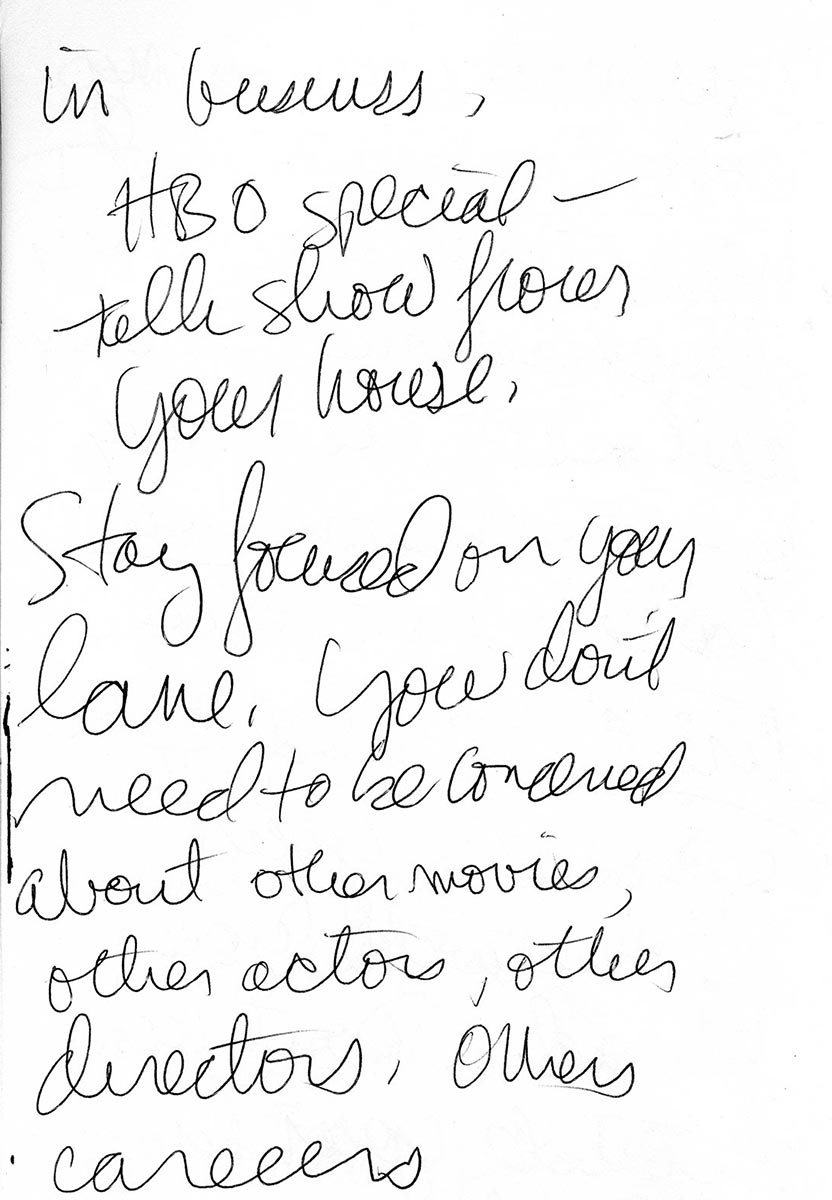 in business,
HBO special —
talk show from
your house.
Stay focused on your
lane. You don't
need to be concerned
about other movies,
other actors, other
directors, others
careers